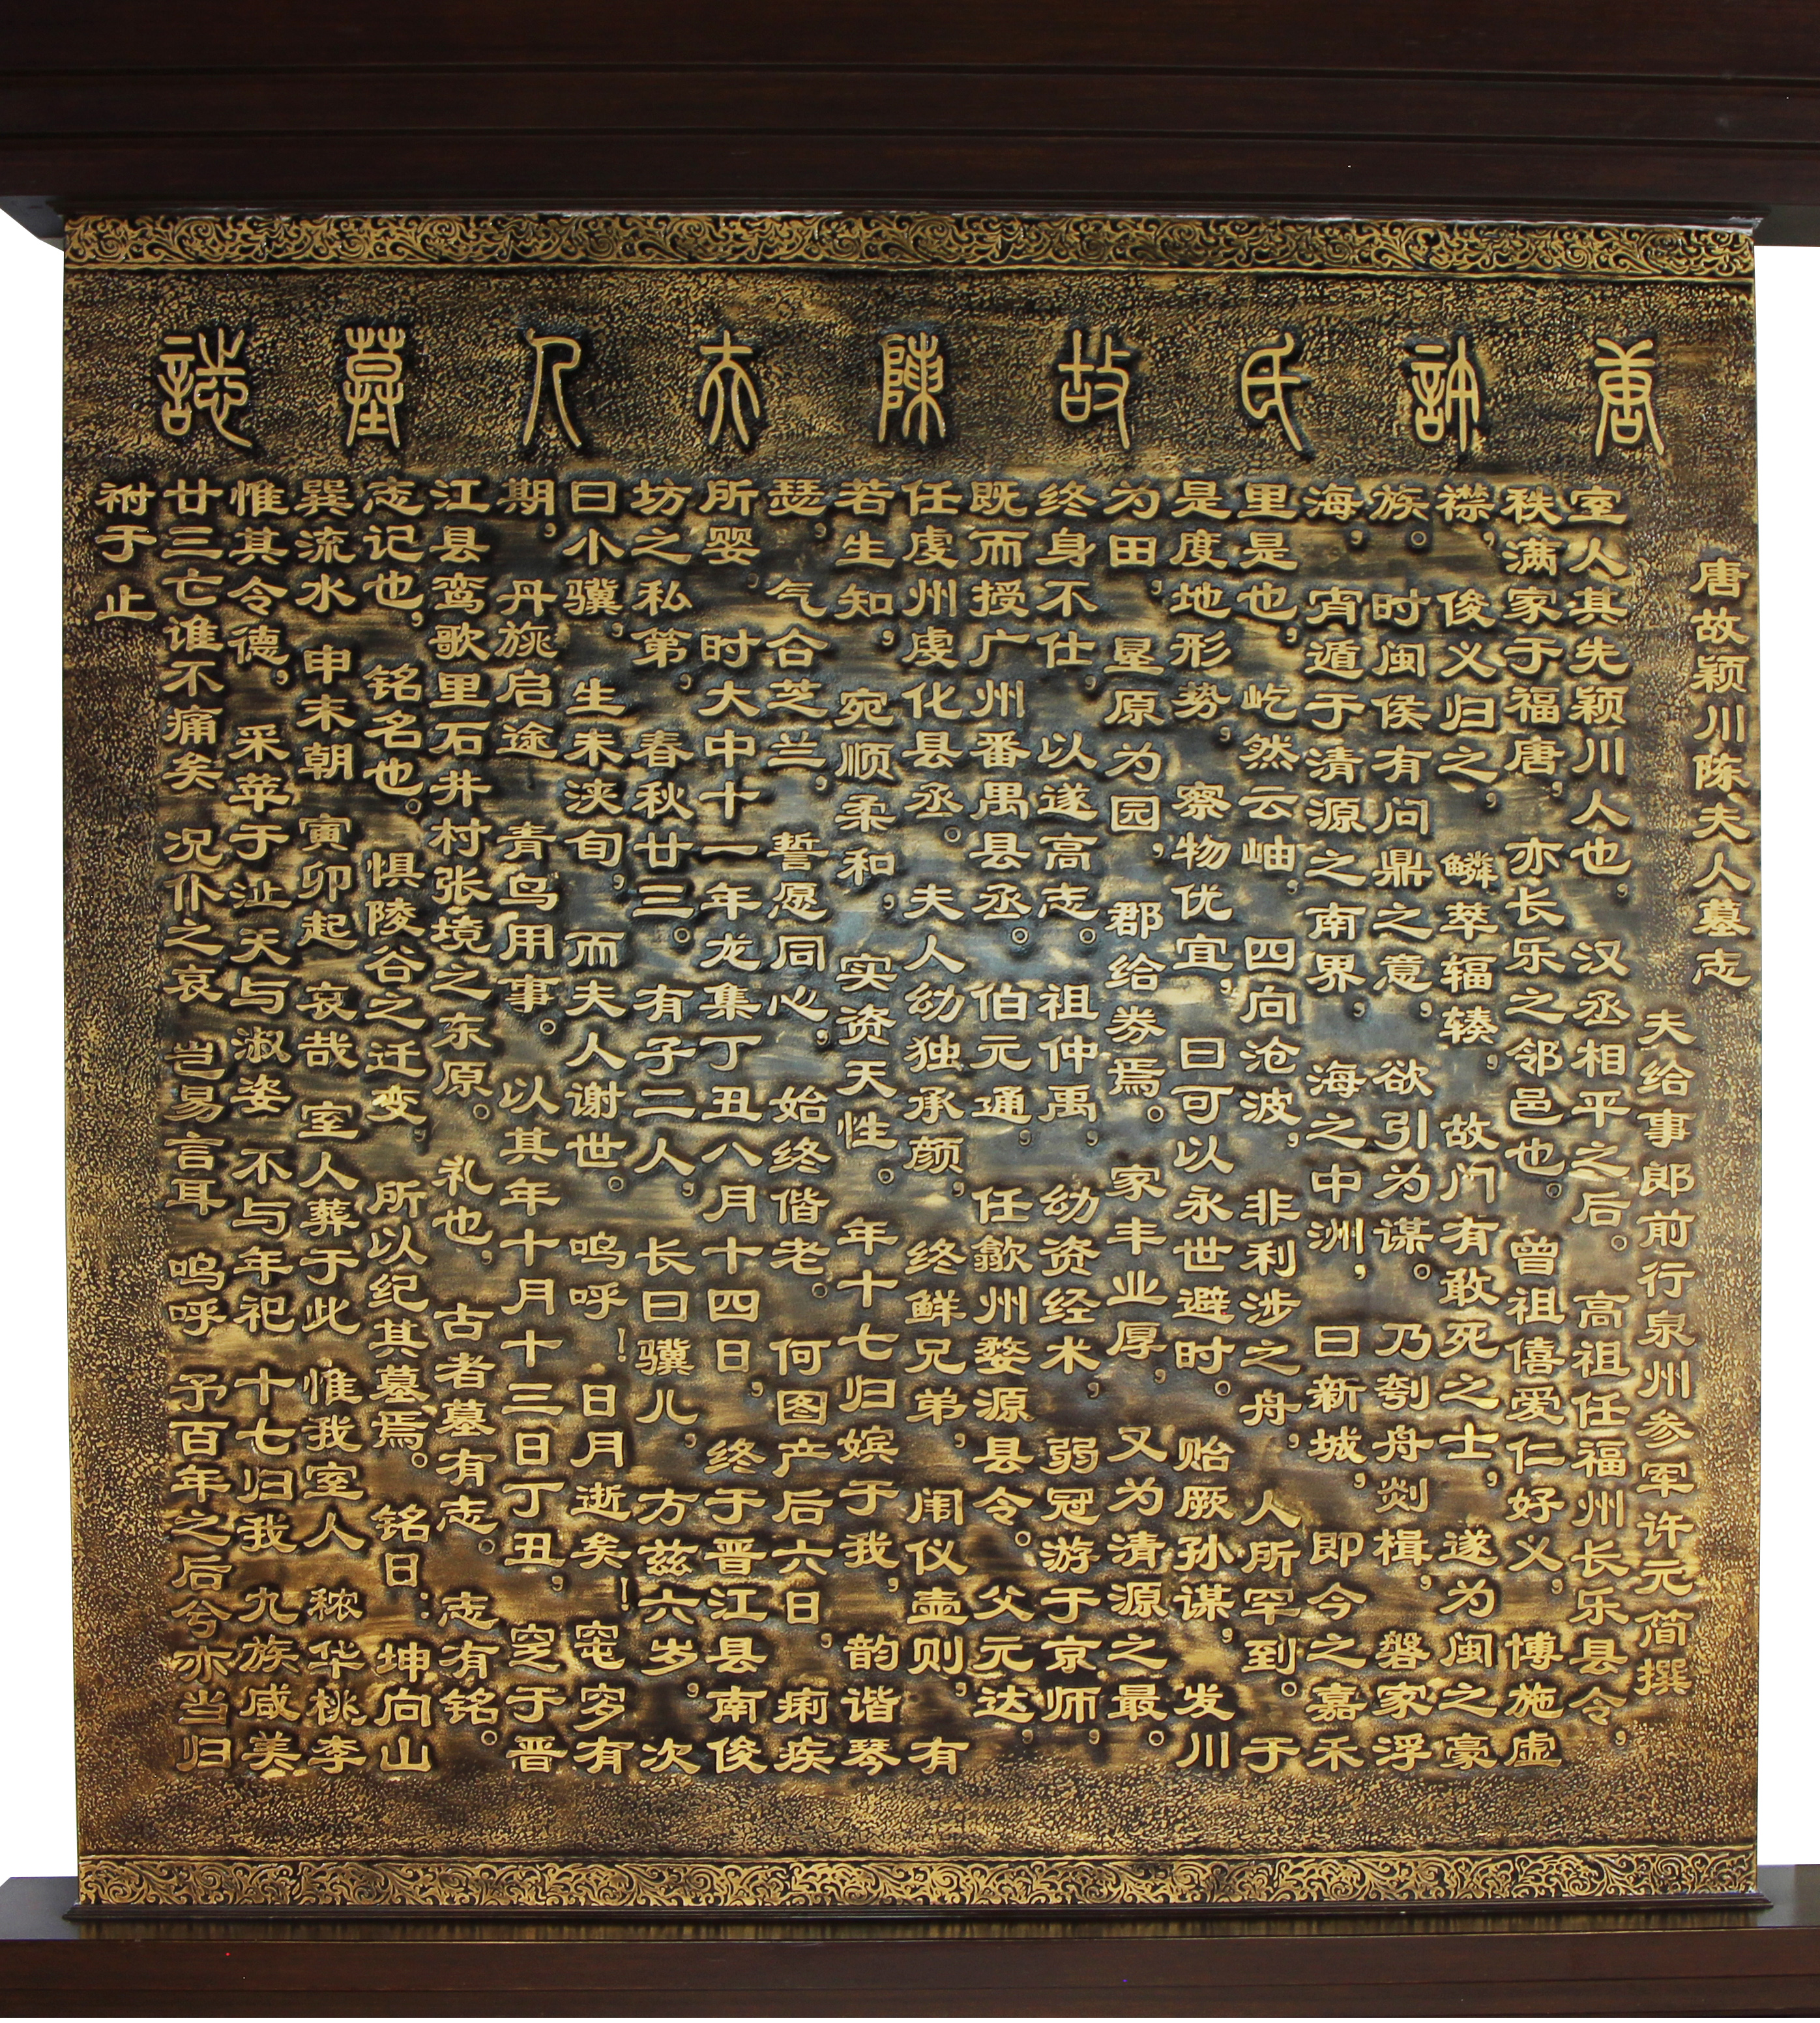 唐許氏故陳夫人墓誌
唐故颍川陈夫人墓志
夫给事郎前行泉州参军许元简撰
室人其先颍川人也，汉丞相平之后。高祖任福州长乐县令，
秩满家于福唐，亦长乐之邻邑也。曾祖僖爱仁好义，博施虚
襟，俊义归之，鳞萃辐辏，故门有敢死之士，遂为闽之豪
族。时闽侯有问鼎之意，欲引为谋。乃刳舟剡楫，磐家浮
海，宵遁于清源之南界，海之中洲，曰新城，即今之嘉禾
里是也，屹然云岫，四向沧波，非利涉之舟，人所罕到。于
是度地形势，察物优宜，曰可以永世避时。贻厥孙谋，发川
为田，垦原为园，郡给券焉。家丰业厚，又为清源之最。
终身不仕，以遂高志。祖仲禹，幼资经术，弱冠游于京师，
既而授广州番禺县丞。伯元通，任歙州婺源县令。父元达，
任虔州虔化县丞。夫人幼独承颜，终鲜兄弟，闺仪壸则，有
若生知，宛顺柔和，实资天性。年十七归嫔于我，韵谐琴
瑟，气合芝兰，誓愿同心，始终偕老。何图产后六日，痢疾
所婴，时大中十一年龙集丁丑八月十四日，终于晋江县南俊
坊之私第，春秋廿三。有子二人，长曰骥儿，方兹六岁，次
曰小骥，生未浃旬，而夫人谢世。呜呼！日月逝矣！窀穸有
期，丹旐启途，青鸟用事。以其年十月十三日丁丑，窆于晋
江县鸾歌里石井村张境之东原。礼也，古者墓有志。志有铭。
志记也，铭名也。惧陵谷之迁变，所以纪其墓焉。铭曰：坤向山
巽流水 申未朝 寅卯起 哀哉 室人葬于此 惟我室人 秾华桃李
惟其令德，采苹于沚 天与淑姿 不与年祀 十七归我 九族咸美
廿三亡谁不痛矣 况仆之哀 岂易言耳 呜呼 予百年之后兮亦当归
祔于止